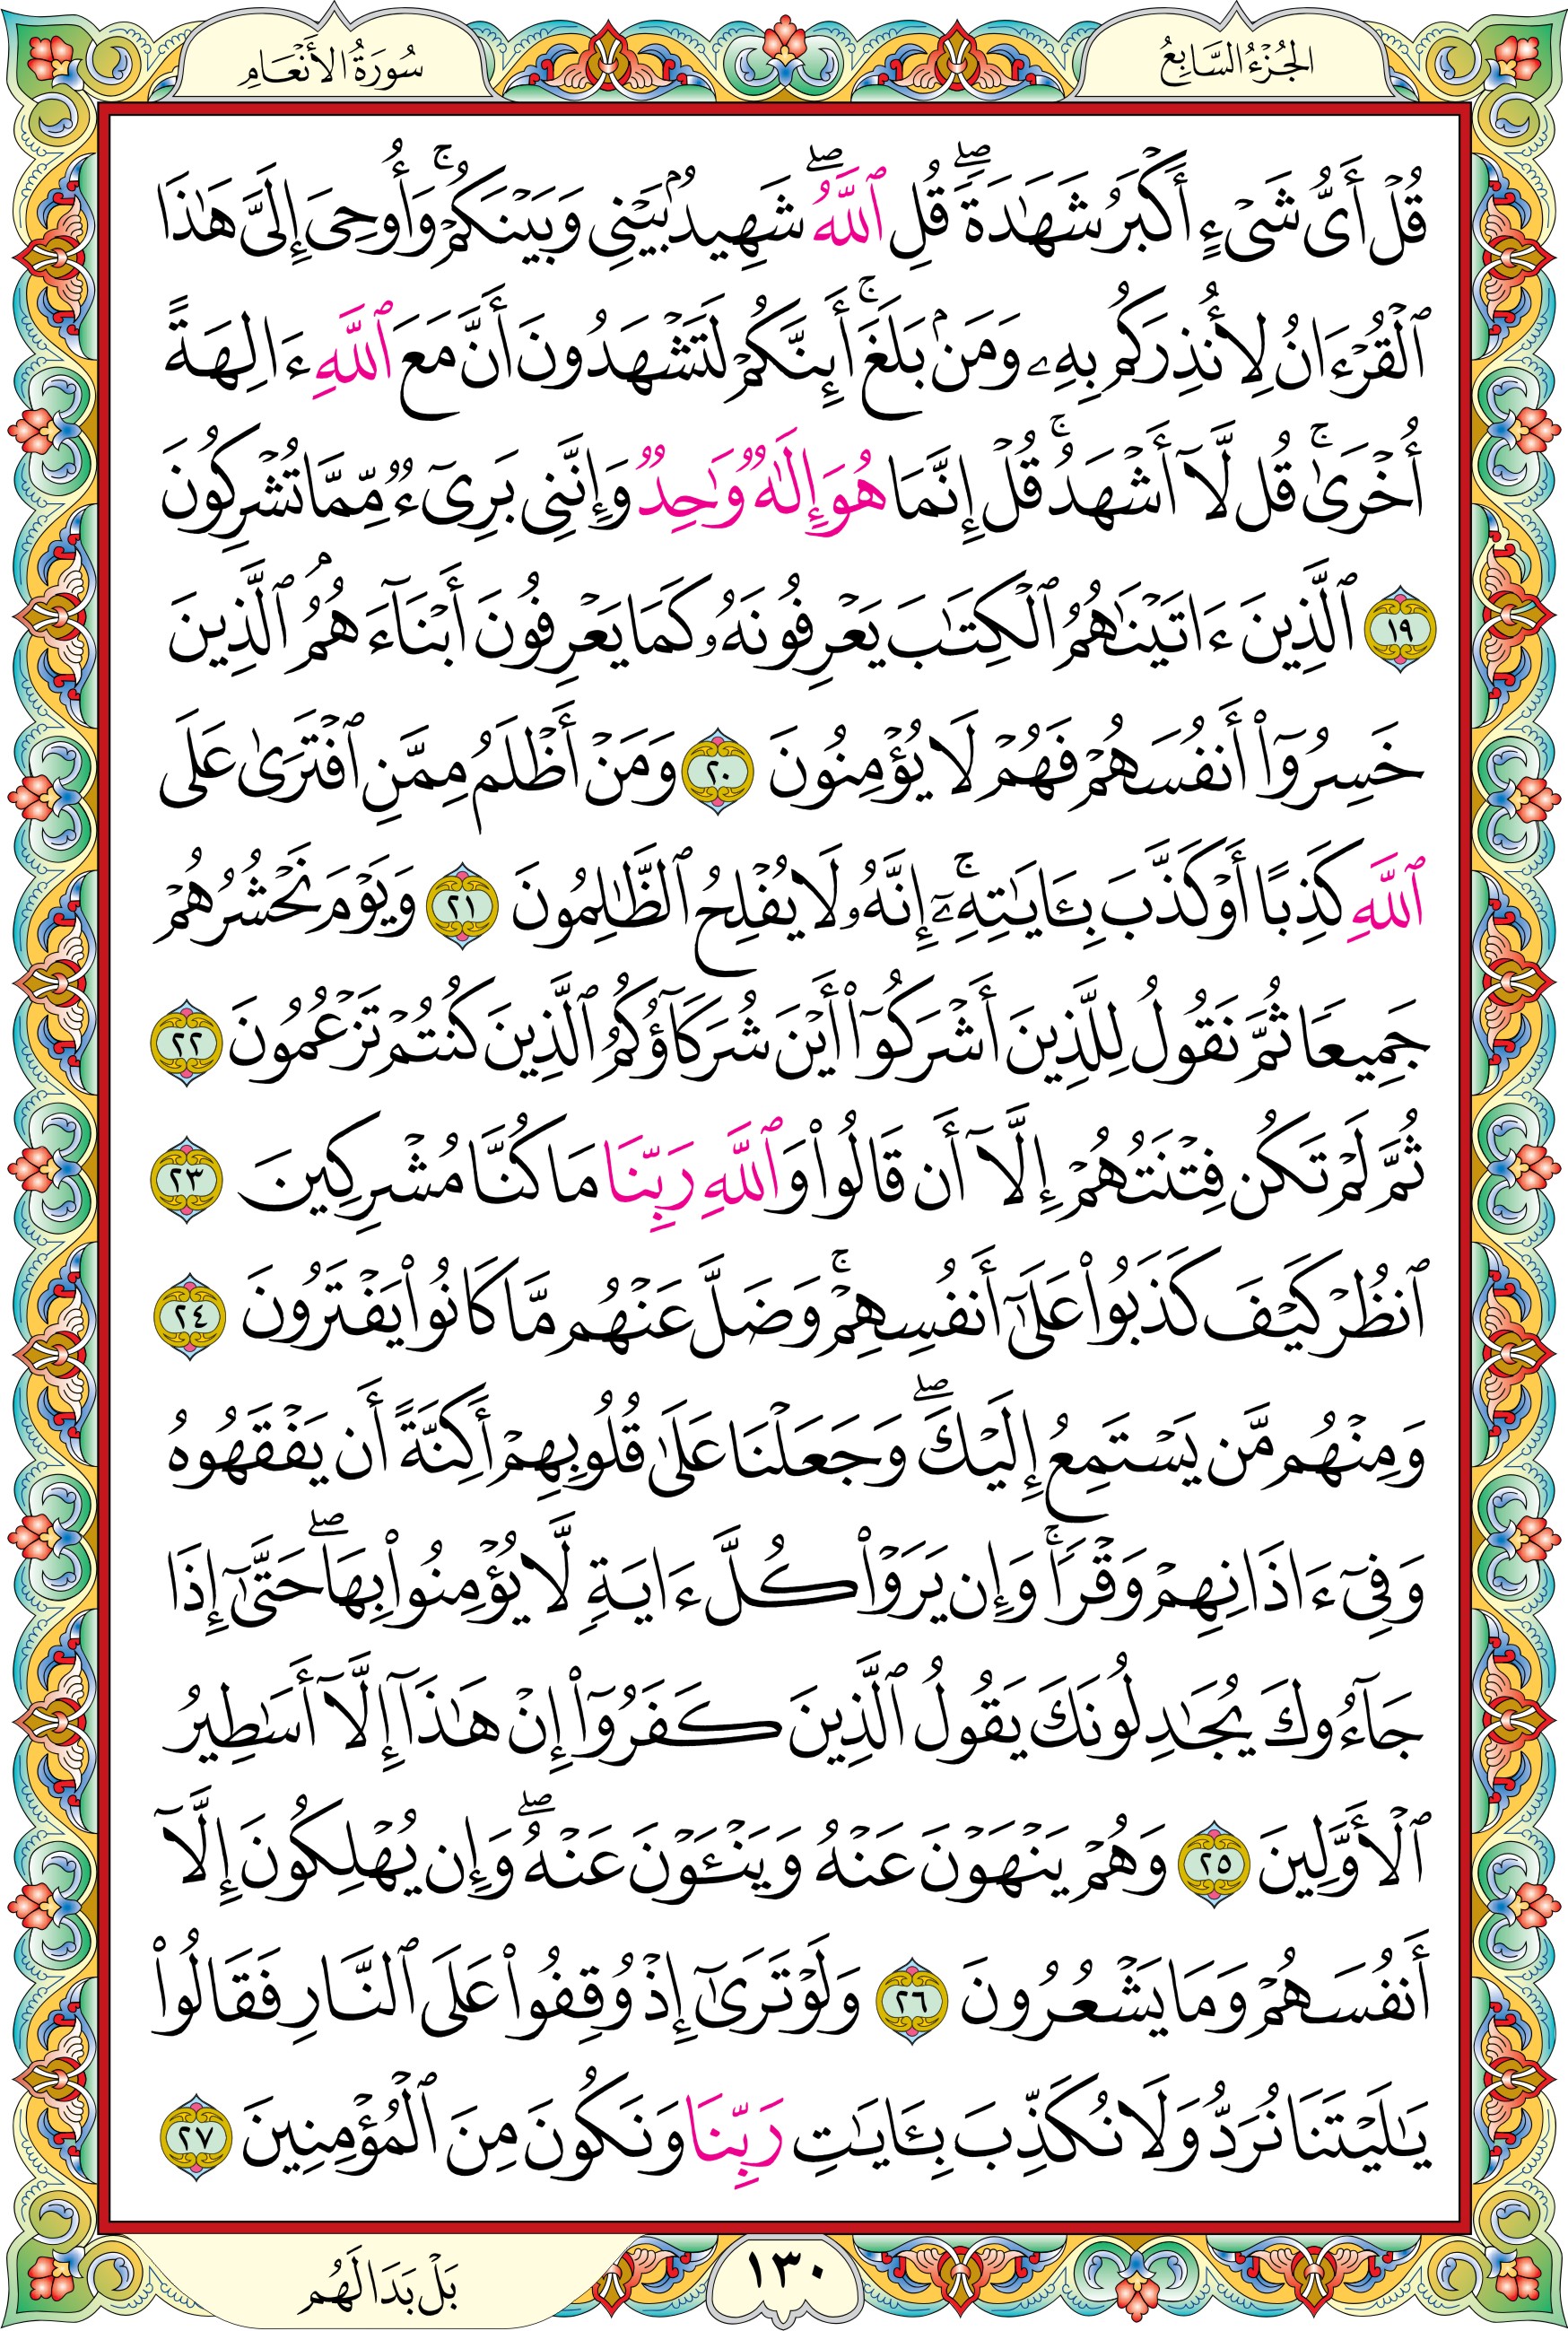 الجُزْءُ السَّابِعُ
سُورَةُ الأَنْعَامِ
قُلْ أَىُّ شَىْءٍ أَكْبَرُ شَهَٰدَةًۖ قُلِ ٱللَّهُۖ شَهِيدُۢ بَيْنِى وَبَيْنَكُمْۚ وَأُوحِىَ إِلَىَّ هَٰذَا
ٱلْقُرْءَانُ لِأُنذِرَكُم بِهِۦ وَمَنۢ بَلَغَۚ أَئِنَّكُمْ لَتَشْهَدُونَ أَنَّ مَعَ ٱللَّهِ ءَالِهَةً
أُخْرَىٰۚ قُل لَّآ أَشْهَدُۚ قُلْ إِنَّمَا هُوَ إِلَٰهٌ وَٰحِدٌ وَإِنَّنِى بَرِىٓءٌ مِّمَّا تُشْرِكُونَ
١٩ ٱلَّذِينَ ءَاتَيْنَٰهُمُ ٱلْكِتَٰبَ يَعْرِفُونَهُۥ كَمَا يَعْرِفُونَ أَبْنَآءَهُمُۘ ٱلَّذِينَ
خَسِرُوٓا۟ أَنفُسَهُمْ فَهُمْ لَا يُؤْمِنُونَ ٢٠ وَمَنْ أَظْلَمُ مِمَّنِ ٱفْتَرَىٰ عَلَى
ٱللَّهِ كَذِبًا أَوْ كَذَّبَ بِـَٔايَٰتِهِۦٓۚ إِنَّهُۥ لَا يُفْلِحُ ٱلظَّٰلِمُونَ ٢١ وَيَوْمَ نَحْشُرُهُمْ
جَمِيعًا ثُمَّ نَقُولُ لِلَّذِينَ أَشْرَكُوٓا۟ أَيْنَ شُرَكَآؤُكُمُ ٱلَّذِينَ كُنتُمْ تَزْعُمُونَ ٢٢
ثُمَّ لَمْ تَكُن فِتْنَتُهُمْ إِلَّآ أَن قَالُوا۟ وَٱللَّهِ رَبِّنَا مَا كُنَّا مُشْرِكِينَ ٢٣
ٱنظُرْ كَيْفَ كَذَبُوا۟ عَلَىٰٓ أَنفُسِهِمْۚ وَضَلَّ عَنْهُم مَّا كَانُوا۟ يَفْتَرُونَ ٢٤
وَمِنْهُم مَّن يَسْتَمِعُ إِلَيْكَۖ وَجَعَلْنَا عَلَىٰ قُلُوبِهِمْ أَكِنَّةً أَن يَفْقَهُوهُ
وَفِىٓ ءَاذَانِهِمْ وَقْرًاۚ وَإِن يَرَوْا۟ كُلَّ ءَايَةٍ لَّا يُؤْمِنُوا۟ بِهَاۖ حَتَّىٰٓ إِذَا
جَآءُوكَ يُجَٰدِلُونَكَ يَقُولُ ٱلَّذِينَ كَفَرُوٓا۟ إِنْ هَٰذَآ إِلَّآ أَسَٰطِيرُ
ٱلْأَوَّلِينَ ٢٥ وَهُمْ يَنْهَوْنَ عَنْهُ وَيَنْـَٔوْنَ عَنْهُۖ وَإِن يُهْلِكُونَ إِلَّآ
أَنفُسَهُمْ وَمَا يَشْعُرُونَ ٢٦ وَلَوْ تَرَىٰٓ إِذْ وُقِفُوا۟ عَلَى ٱلنَّارِ فَقَالُوا۟
يَٰلَيْتَنَا نُرَدُّ وَلَا نُكَذِّبَ بِـَٔايَٰتِ رَبِّنَا وَنَكُونَ مِنَ ٱلْمُؤْمِنِينَ ٢٧
١٣٠
بَلْ بَدَا لَهُم